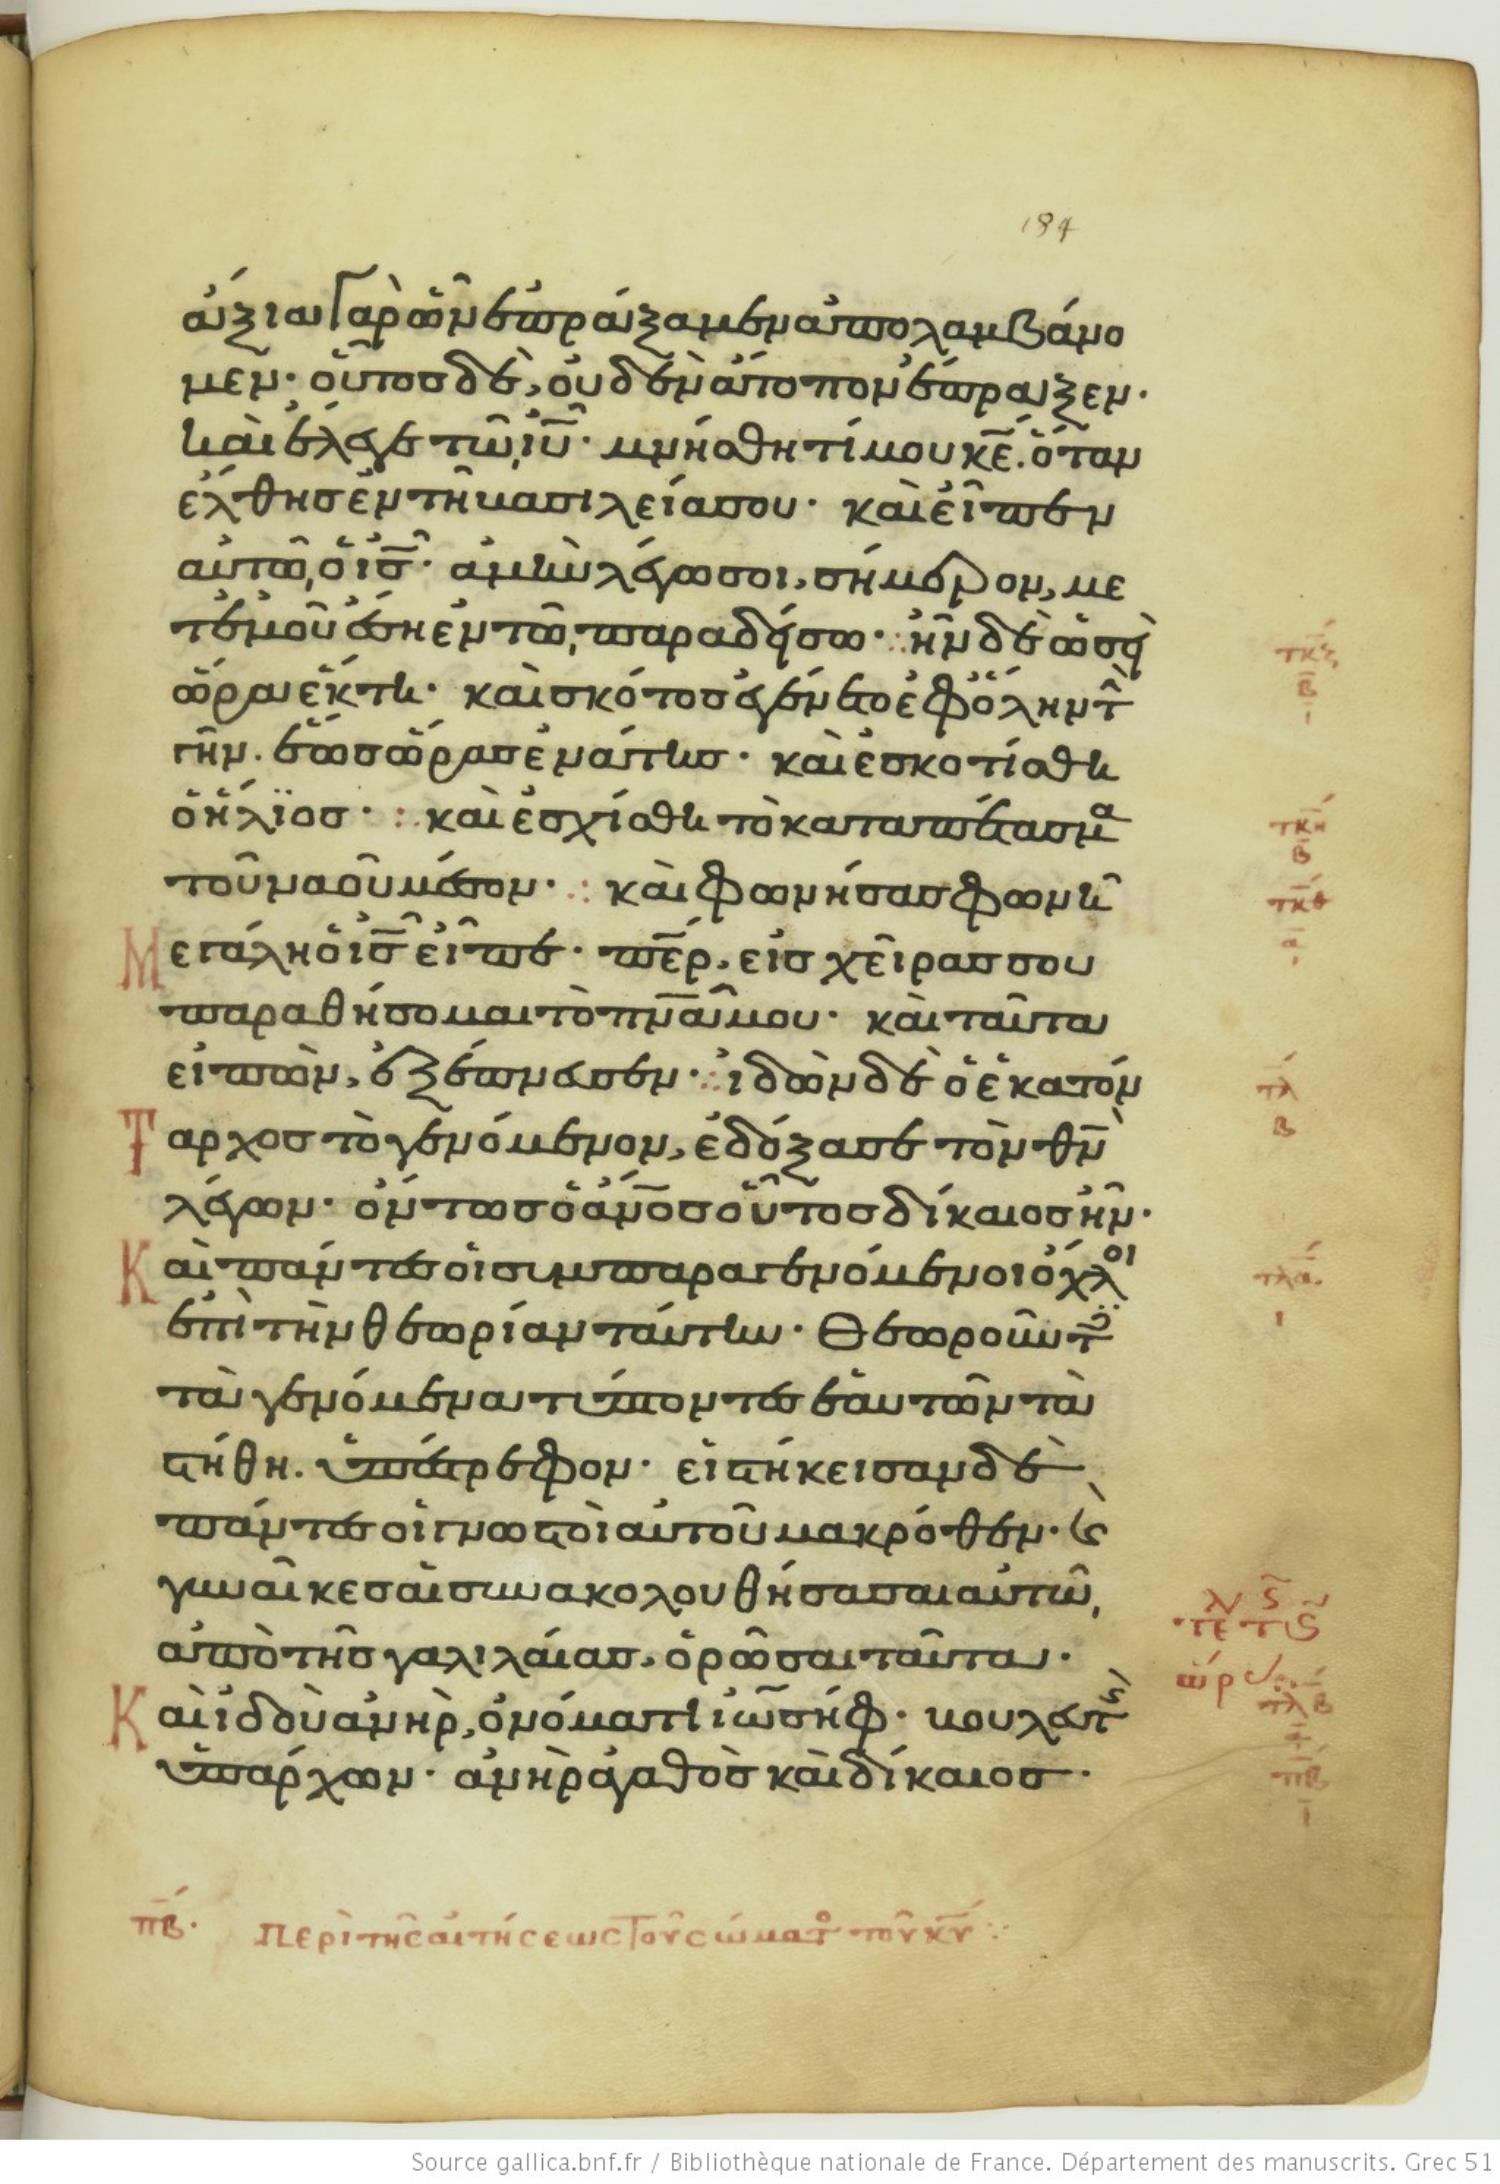 184
ἄξια γὰρ ὧν ἐπράξαμεν ἀπολαμβάνο
μεν· οὗτος δὲ, οὐδὲν ἄτοπον ἔπραξεν·
καὶ ἔλεγε τῶ ιῦ· μνήσθητί μου κε̄. ὅταν
ἔλθης ἐν τῆ βασιλεία σου· καὶ εἶπεν
αὐτῶ, ὁ ις̄· ἀμὴν λέγω σοι, σήμερον, με
τ᾽ἐμοῦ ἔση ἐν τῶ, παραδείσω· ἦν δὲ ὡσεὶ
ὥρα ἕκτη· καὶ σκότος ἐγένετο ἐφ᾽ ὅλην τ
γῆν. ἕως ὥρας ἐνάτης· καὶ ἐσκοτίσθη
ὁ ἥλϊος· καὶ ἐσχίσθη τὸ καταπέτασμα
τοῦ ναοῦ μέσον· καὶ φωνήσας φωνῆ
Μεγάλη ὁ ις̄ εἶπε· πε̄ρ, εἰς χεῖρας σου
παραθήσομαι τὸ πν̄α μου· καὶ ταῦτα
εἰπὼν, ἐξέπνευσεν· ἰδὼν δὲ ὁ ἑκατόν
Ταρχος τὸ γενόμενον, ἐδόξασε τὸν θν̄
λέγων· ὄντως ὁ ἄνο̄ς οὗτος δίκαιος ἦν·
Καὶ πάντες οἱ συμπαραγενόμενοι ὄχλοι
ἐπὶ τὴν θεωρίαν ταύτην· Θεωροῦντ
τὰ γενόμενα τύπτοντες ἑαυτῶν τὰ
στήθη. ὑπέστρεφον· εἱστήκεισαν δὲ
πάντες οἱ γνωστοὶ αὐτοῦ μακρόθεν· ϗ
γυναῖκες αἱ συνακολουθήσασαι αὐτῶ,
ἀπὸ τῆς γαλιλαίας, ὁρῶσαι ταῦτα·
Καὶ ἰδοὺ ἀνὴρ, ὀνόματι ἰωσὴφ· βουλευτ
ὑπάρχων· ἀνὴρ ἀγαθὸς καὶ δίκαιος·
πβ· Περὶ τῆς αἰτήσεως τοῦ σώματο τοῦ κῡ
τκζ
β
ι
τκη
β
τκθ
α
τλ
β
τλα
ι
τλβ
πβ
Source gallica.bnf.fr / Bibliothèque nationale de France. Département des manuscrits. Grec 51